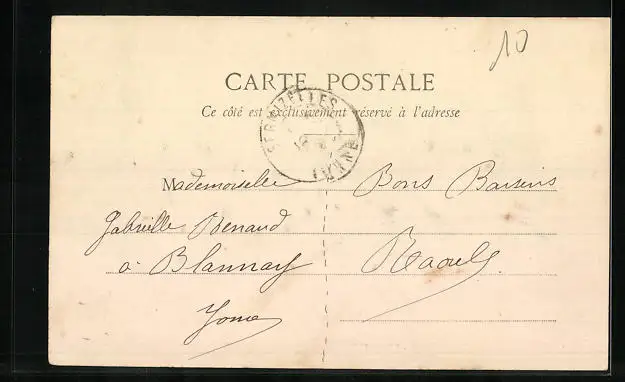 10
CARTE POSTALE
Ce côté est exclusivement réservé à l'adresse
SERMIZELLES
YONNE
Mademoiselle
Gabrielle Renaud
à Blannay
Yonne
Bons Baisers
Raoul